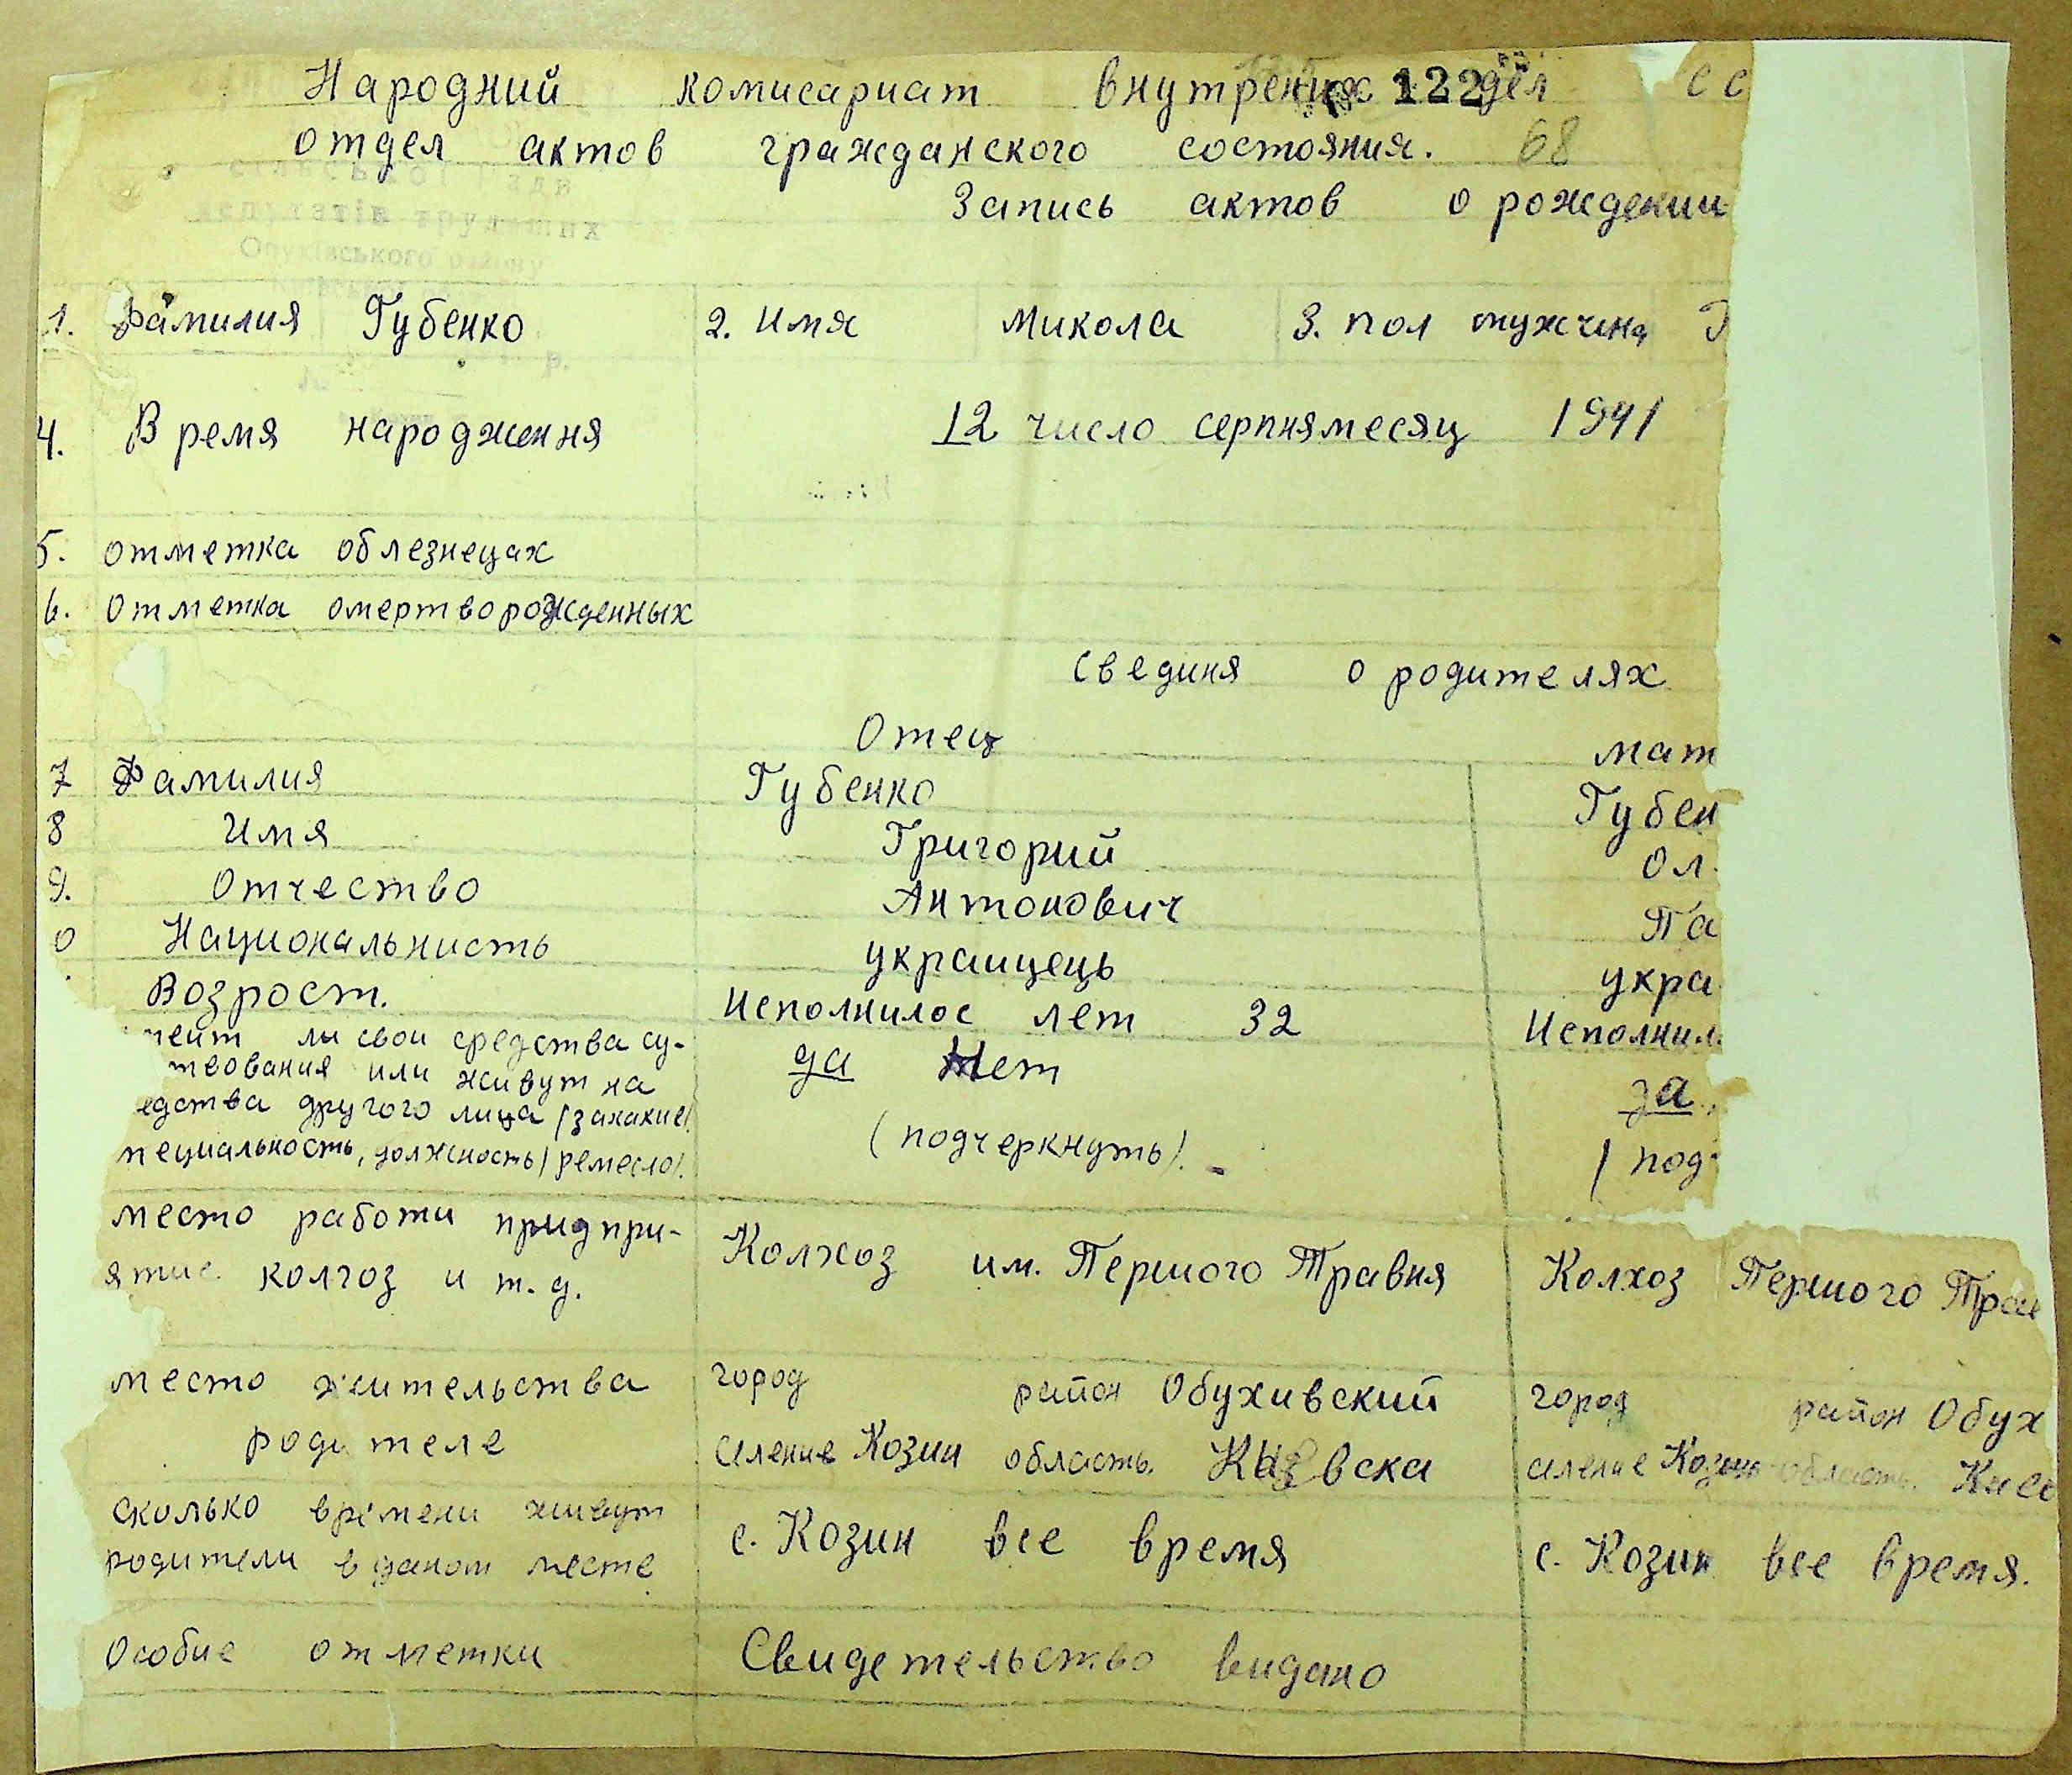 Народний комисариат внутрених дел С С
122
отдел актов гражданского состояния. 68
Запись актов о рождении
1. Фамилия Губенко 2. Имя Микола 3. пол мужчина Г
4. Время народження 12 число серпня месяц 1941
5. отметка облезнецах
6. отметка омертворожденных
Свединя о родителях
Отец мат
7 Фамилия Губенко Губен
8 Имя Григорий Ол
9. Отчество Антонович Па
0 Национальнисть украицець укра
Возрост. Исполнилос лет 32 Исполнил
меит ли свои средства су-
ствования или живут на да Нет за
едства другого лица (
пециальность, должность) ремесло). (подчеркнуть). - (под
место работи придпри-
ятие. колгоз и т.д. Колхоз им. Першого Травня Колхоз Першого Трав
место жительства город район Обухивский город район Обух
родителе силение Козин область. Киевска силение Козин область. Киев
сколько времени живут
родители в даном месте с. Козин все время с. Козин все время.
Особие отметки Свидетельство видано